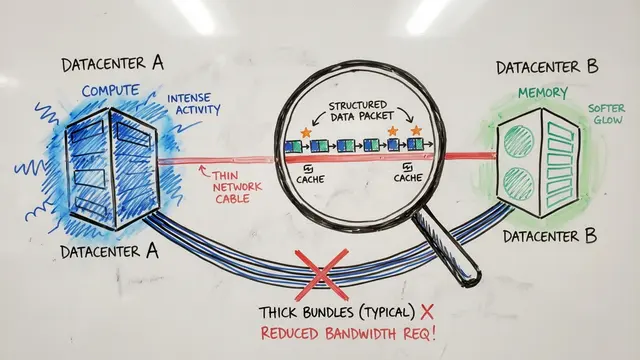 DATACENTER A
COMPUTE
INTENSE
ACTIVITY
THIN
NETWORK
CABLE
DATACENTER A
STRUCTURED
DATA PACKET
CACHE
CACHE
DATACENTER B
MEMORY
SOFTER
GLOW
DATACENTER B
THICK BUNDLES (TYPICAL) X
REDUCED BANDWIDTH REQ!